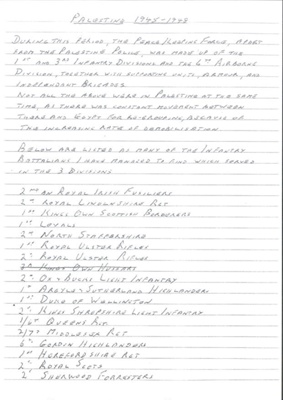 PALESTINE 1945-1948
DURING THIS PERIOD, THE PEACE KEEPING FORCE, APART
FROM THE PALESTINE POLICE, WAS MADE UP OF THE
1ST AND 3RD INFANTRY DIVISIONS AND THE 6TH AIRBORNE
DIVISION, TOGETHER WITH SUPPORTING UNITS, ARMOUR, AND
INDEPENDANT BRIGADES
NOT ALL THE ABOVE WERE IN PALESTINE AT THE SAME
TIME, AS THERE WAS CONSTANT MOVEMENT BETWEEN
THERE AND EGYPT FOR REGROUPING, BECAUSE OF
THE INCREASING RATE OF DEMOBILISATION
BELOW ARE LISTED AS MANY OF THE INFANTRY
BATTALIONS I HAVE MANAGED TO FIND WHICH SERVED
IN THE 3 DIVISIONS
2ND BN ROYAL IRISH FUSILIERS
2ND ROYAL LINCOLNSHIRE RGT
1ST KINGS OWN SCOTTISH BORDERERS
1ST LOYALS
2ND NORTH STAFFORDSHIRE
1ST ROYAL ULSTER RIFLES
2ND ROYAL ULSTER RIFLES
3RD KINGS OWN HUSSARS
2ND OX & BUCKS LIGHT INFANTRY
1ST ARGYLE & SUTHERLAND HIGHLANDERS
1ST DUKE OF WELLINGTON
2ND KINGS SHROPSHIRE LIGHT INFANTRY
QUEENS RGT
2/7TH MIDDLESEX RGT
6TH GORDON HIGHLANDERS
1ST HEREFORDSHIRE RGT
2ND ROYAL SCOTS
2ND SHERWOOD FORRESTERS